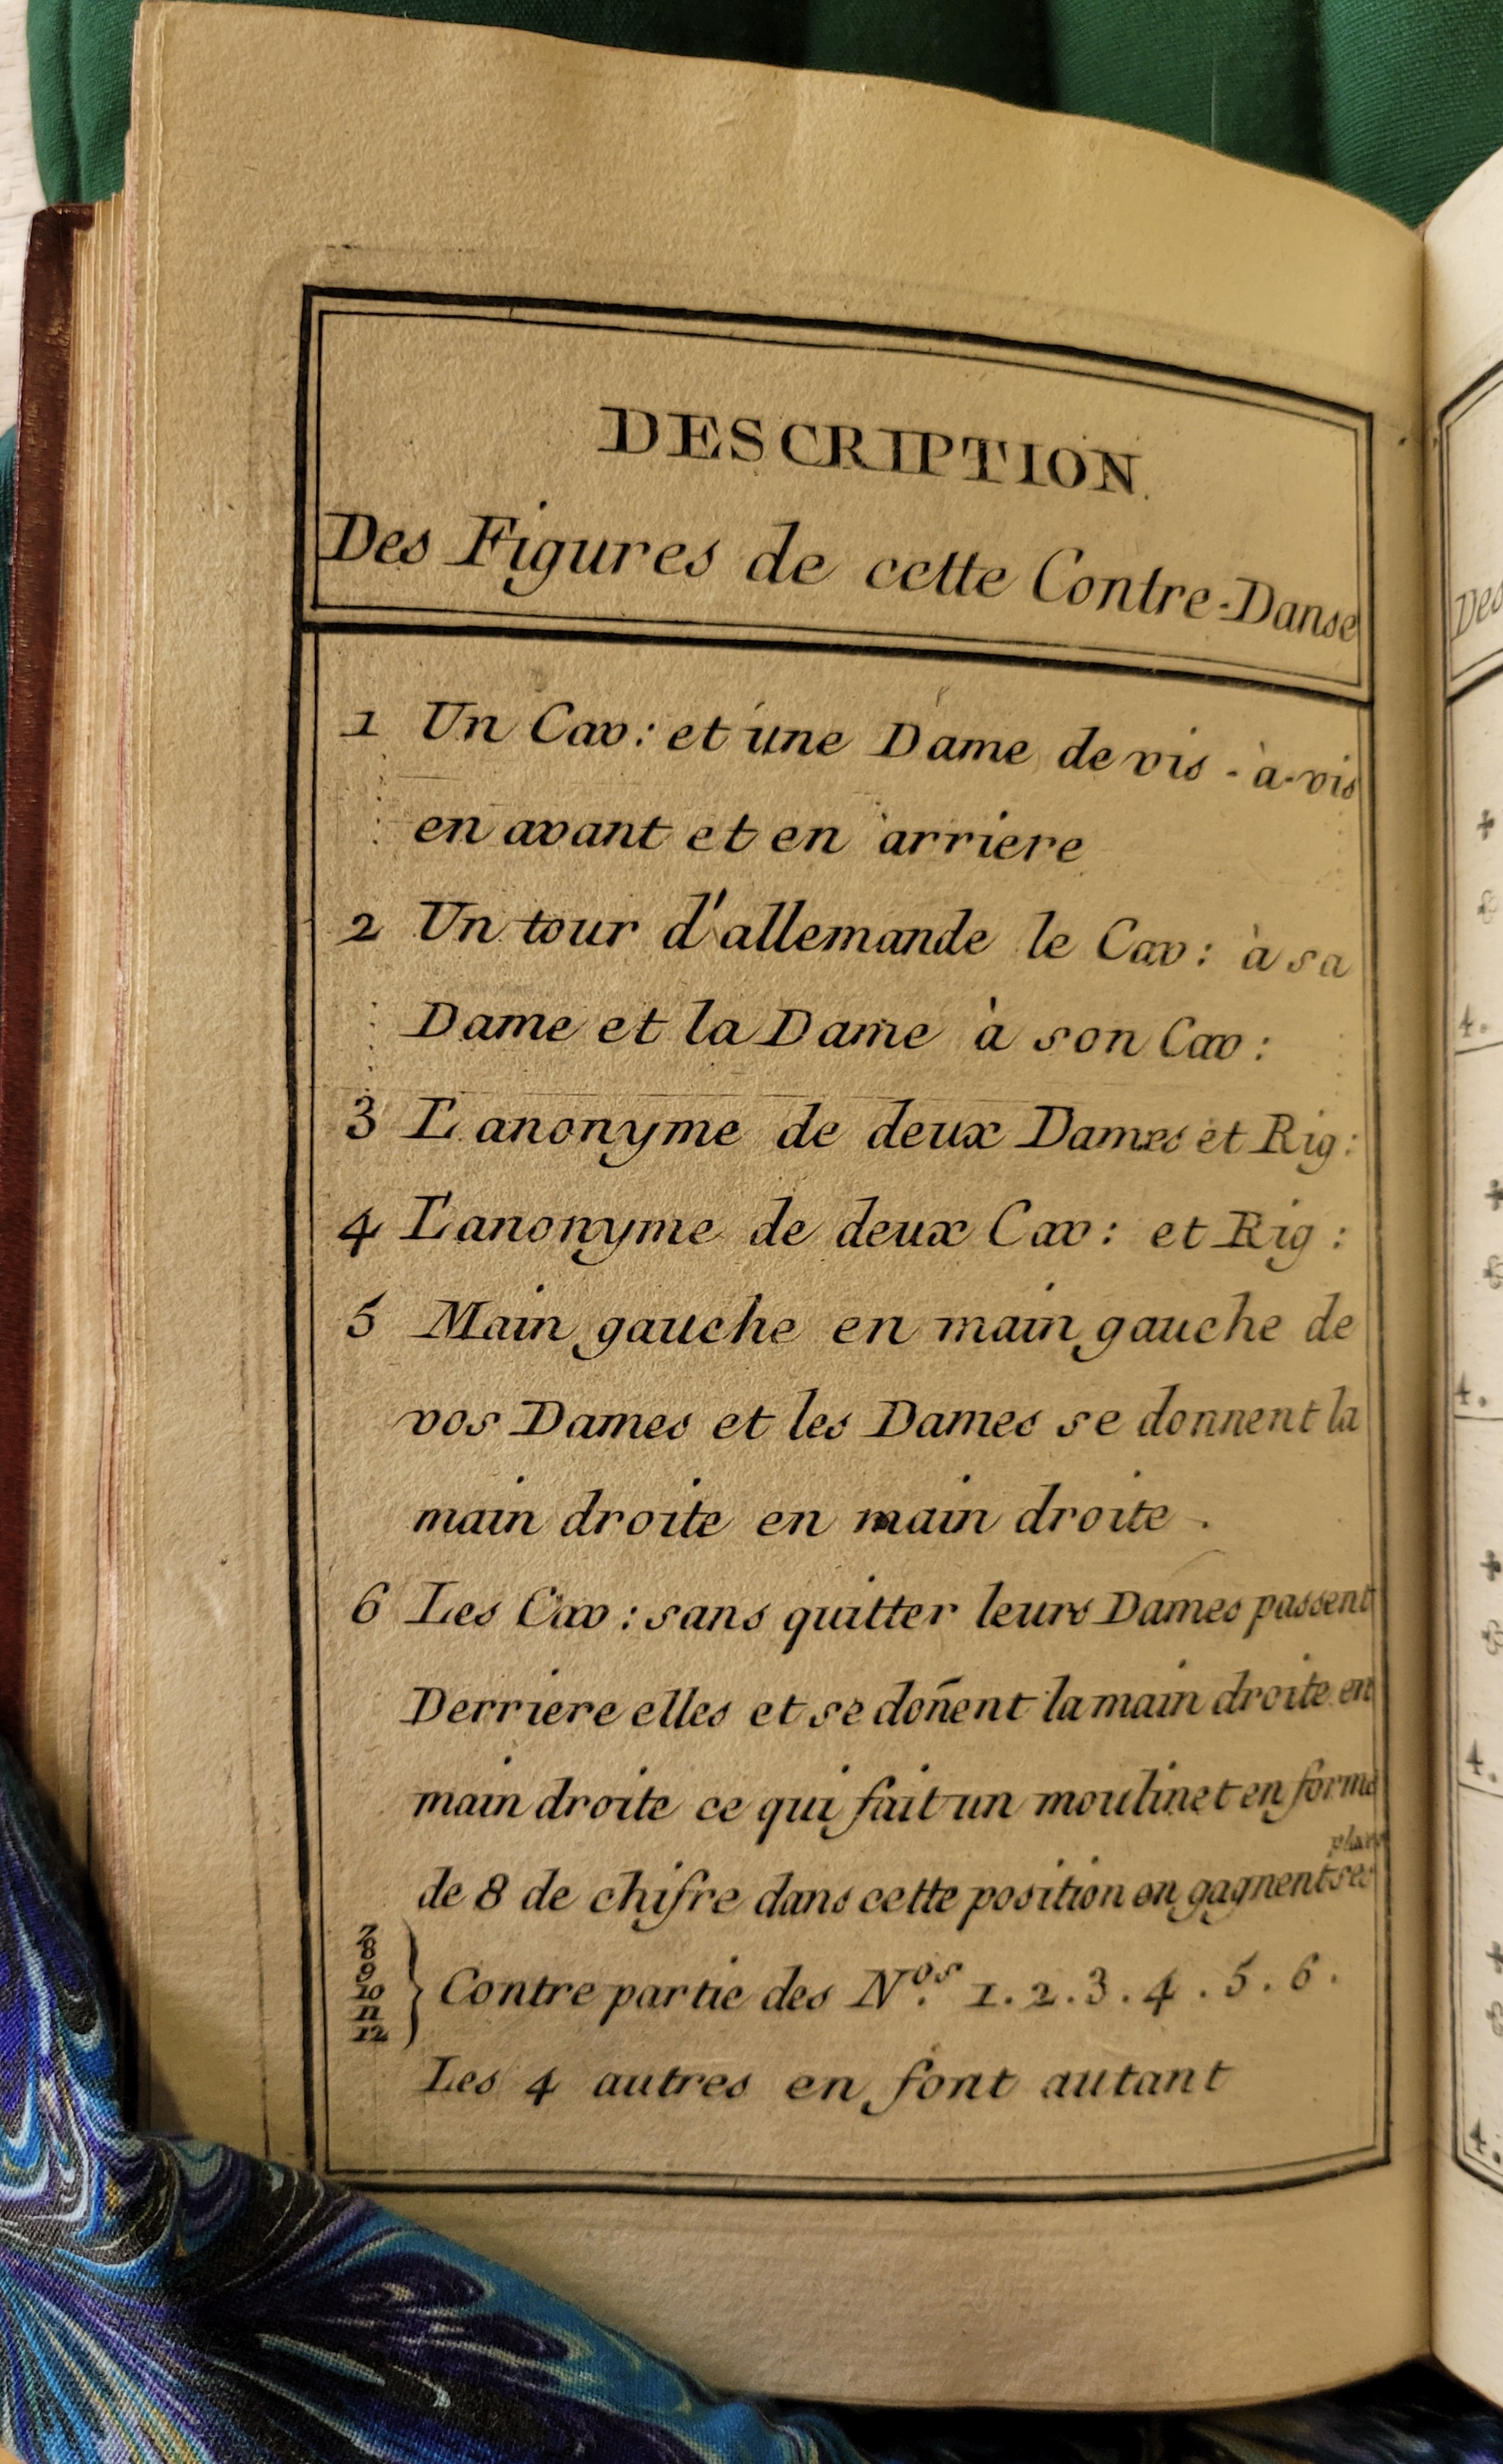 DESCRIPTION
Des Figures de cette Contre-Danse
1 Un Cav: et une Dame de vis-à-vis
en avant et en arriere
2 Un tour d'allemande le Cav: à sa
Dame et la Dame à son Cav:
3 L'anonyme de deux Dames et Rig:
4 L'anonyme de deux Cav: et Rig:
5 Main gauche en main gauche de
vos Dames et les Dames se donnent la
main droite en main droite.
6 Les Cav: sans quitter leurs Dames passent
Derriere elles et se doñent la main droite en
main droite ce qui fait un moulinet en forme
place
de 8 de chifre dans cette position on gagnent ses
7
8
9
10
11
12
} Contre partie des N.os 1.2.3.4.5.6.
Les 4 autres en font autant
Des
4.
4.
4.
4.